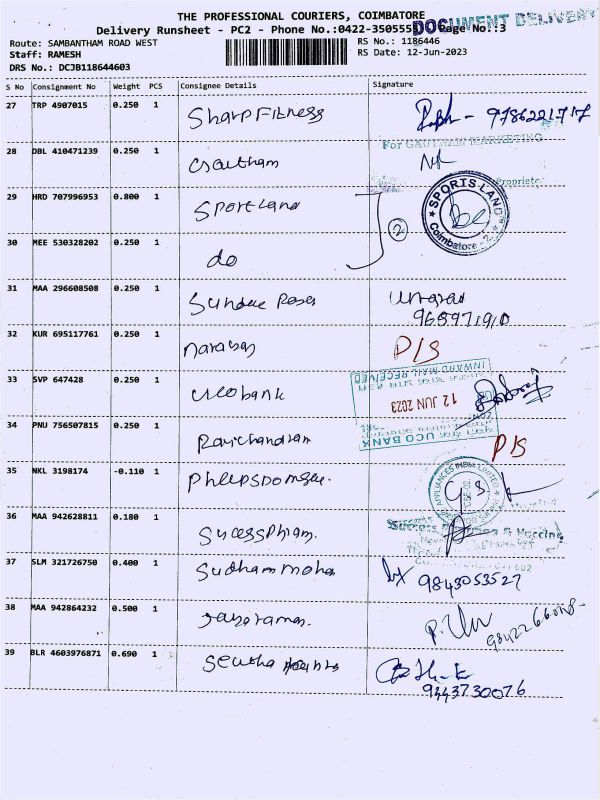 THE PROFESSIONAL COURIERS, COIMBATORE
DOCUMENT DELIVERY
Delivery Runsheet - PC2 - Phone No.:0422-350555 Page No.:3
Route: SAMBANTHAM ROAD WEST RS No.: 1186446
Staff: RAMESH RS Date: 12-Jun-2023
DRS No.: DCJB118644603
S No Consignment No Weight PCS Consignee Details Signature
27 TRP 4907015 0.250 1 Sharp Fitness
For GAUTHAM MARKETING
28 DBL 410471239 0.250 1 Gautham
Proprietor
29 HRD 707996953 0.800 1 Sportland 2 SPORTS LAND Coimbatore - 2
30 MEE 530328202 0.250 1 do
31 MAA 296608508 0.250 1
32 KUR 695117761 0.250 1 Narayan D/S
33 SVP 647428 0.250 1 Uco bank
INWARD MAIL RECEIVED
12 JUN 2023
UCO BANK
34 PNU 756507815 0.250 1 Ravichandran D/S
35 NKL 3198174 -0.110 1
APPLIANCES INDIA LIMITED
36 MAA 942628811 0.180 1
37 SLM 321726750 0.400 1 Sudham moha 9843053527
38 MAA 942864232 0.500 1 Jayaraman
39 BLR 4603976871 0.690 1
9443730076